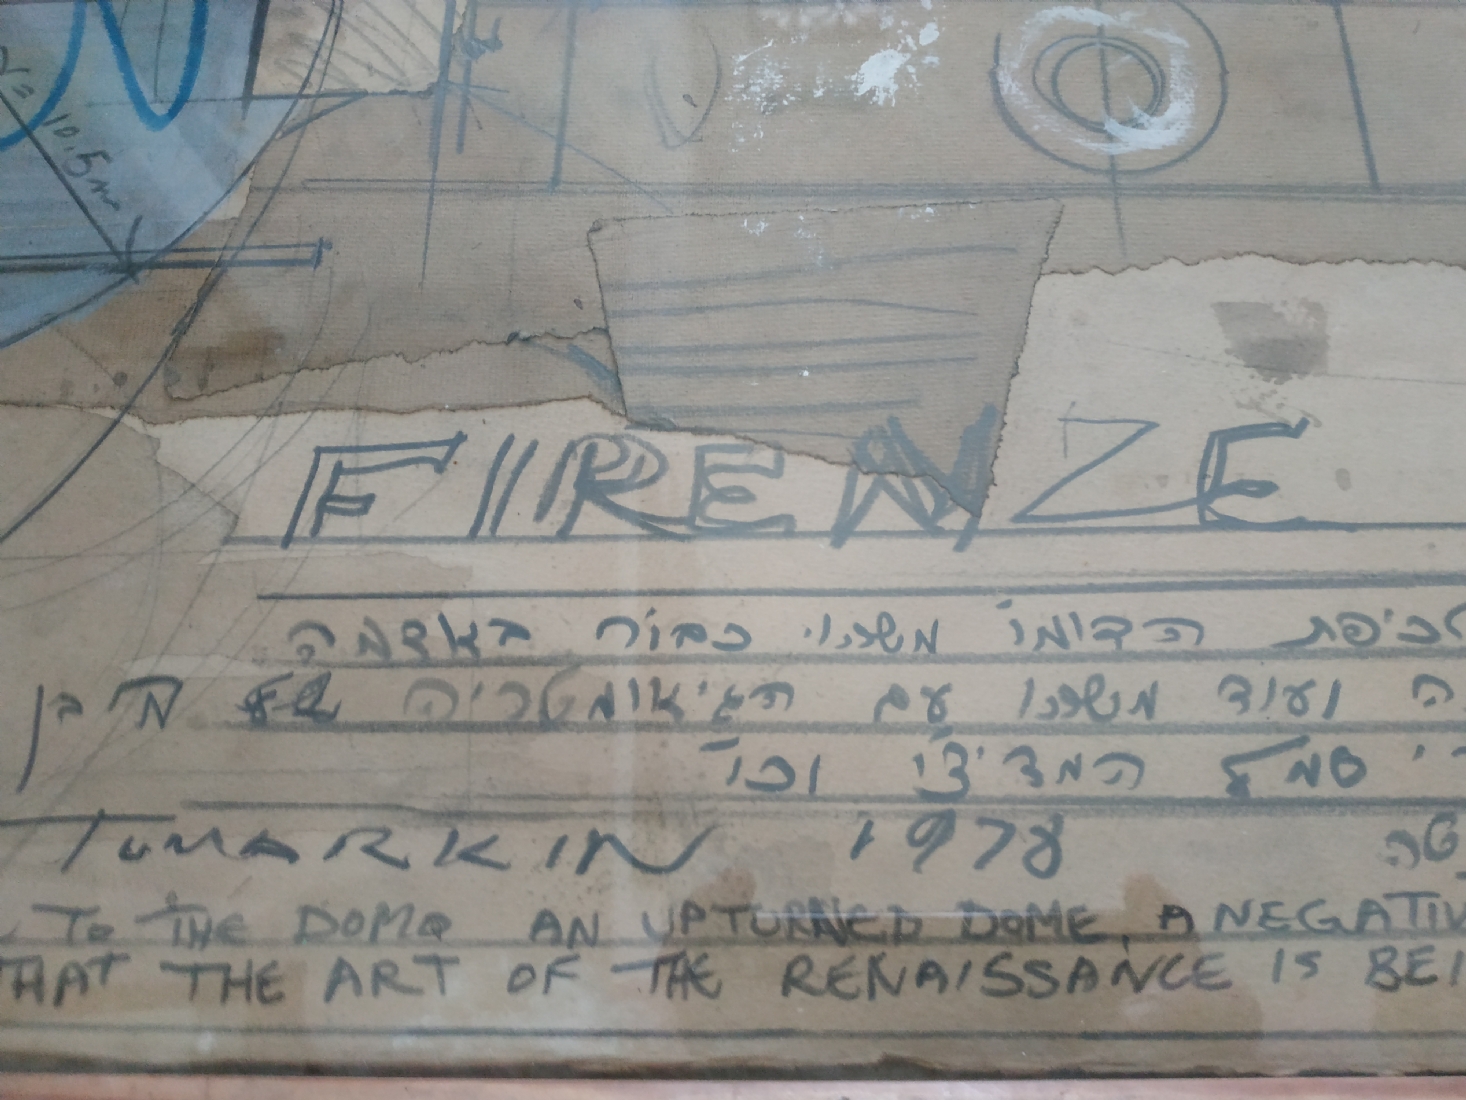 10.5m
FIRENZE
לכיפת הדומו משהו כבור באדמה
ה ועוד משהו עם הגיאומטריה
סמל המדיצ'י וכו'
TUMARKIN 1978
TO THE DOMO AN UPTURNED DOME, A NEGATIV
THAT THE ART OF THE RENAISSANCE IS BEI